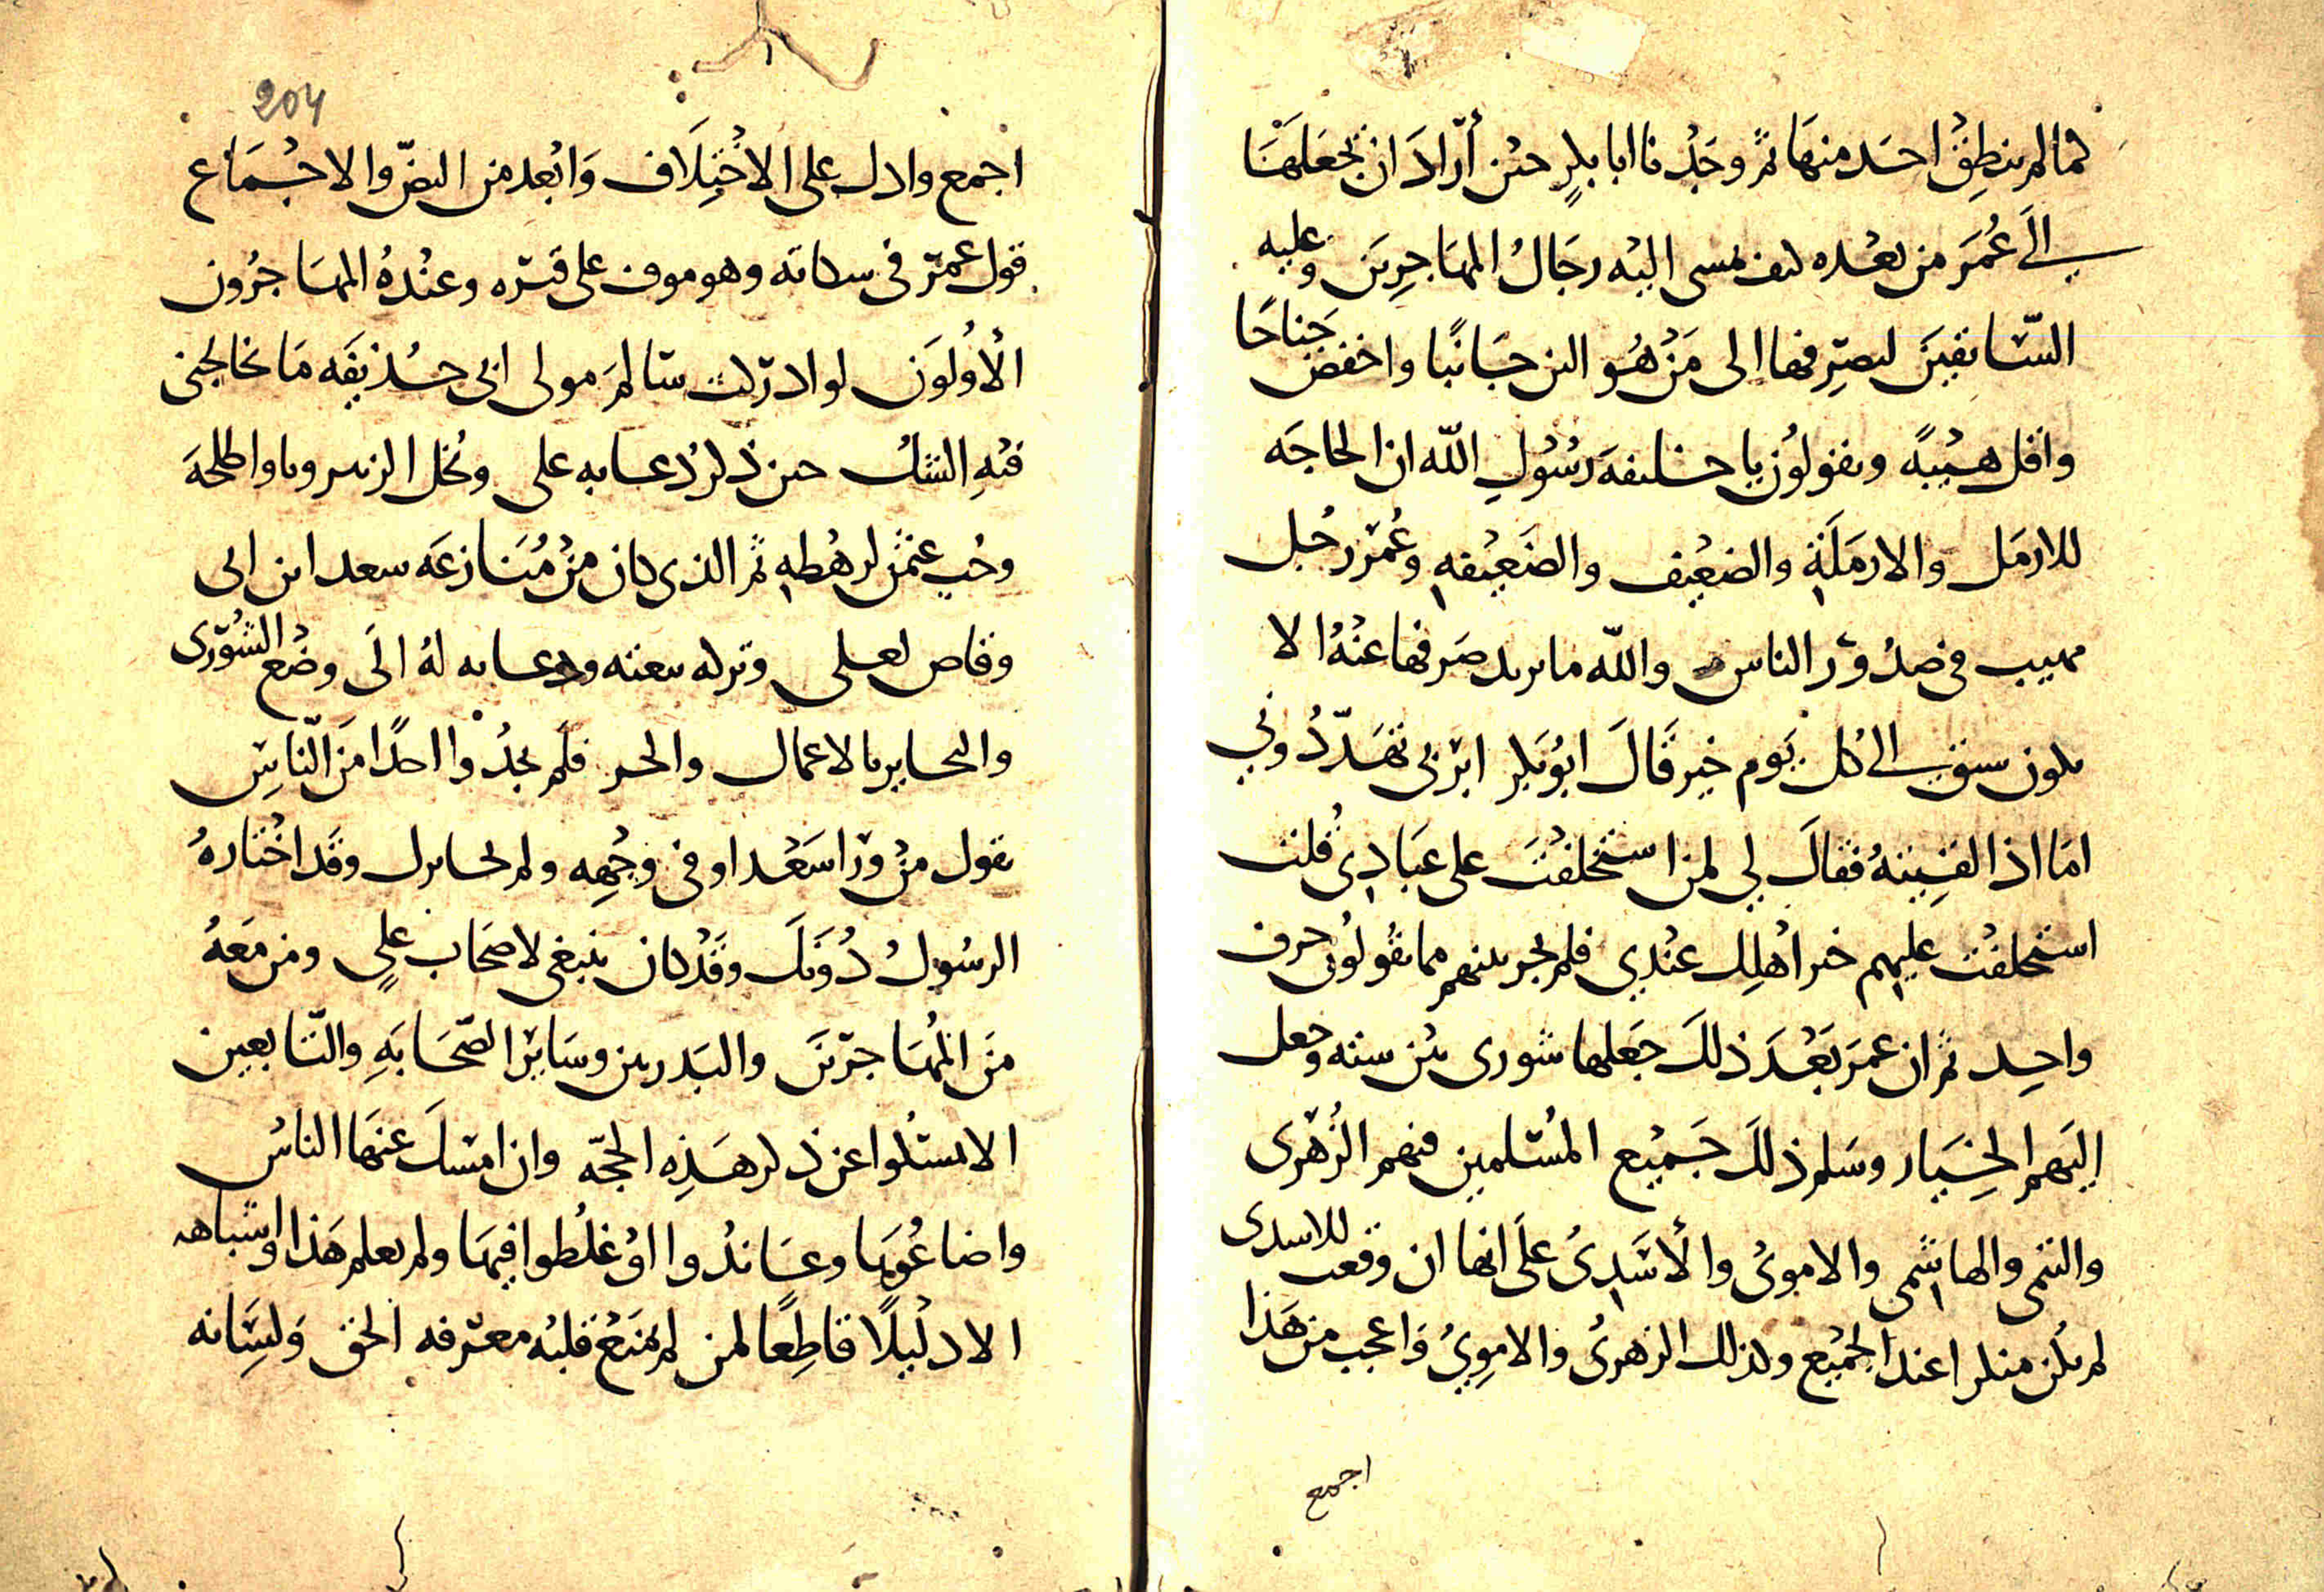 لما لم ينطق احد منها ثم وجدنا ابا بكر حين أراد ان يجعلها
الى عُمَر من بعده كيف مشى اليه رجال المهاجرين وعليه
السّابقين ليصرفها الى مَنْ هُو الين جانبًا واخفض جناحًا
واقل هيبةً ويقولون يا خليفة رسُول اللّه ان الحاجه
للارمل والارملة والضعيف والضعيفه وعُمَر رجُل
مهيب فى صدور الناس واللّه ما يريد صرفها عنهُ الا
يكون سبق الى كل يوم خير قال ابُو بكر ابربى تهدّدُوني
اما اذا لقيته فقال لي لمن استخلفت على عبادى قلت
استخلفت عليهم خير اهلك عندي فلم يجر بينهم مما يقولون حرف
واحد ثم ان عمر بعد ذلك جعلها شورى بين سته وجعل
اليهم الخيار وسلم ذلك جميع المسلمين فيهم الزهرى
والتيمى والهاشمى والاموىُ والأسدىُ على انها ان وقعت للاسدى
لم يكن منكرا عند الجميع وكذلك الزهرىُ والامويُ واعجب من هذا
اجمع
204
اجمع وادل على الاختلاف وابعد من النصّ والاجماع
قول عمر فى شكاته وهو موف على قبره وعنده المهاجرون
الأولون لو ادركت سالم مولى ابى حذيفه ما تخالجنى
فيه الشك حين ذكر دعابه على وبخل الزبير وباو اطلحة
وحُب عثمن لرهطه ثم الذى كان من مُنازعه سعد ابن ابى
وقاص لعلى وتركه بيعته ودعابه لهُ الى وضع الشورى
والتحاير بالاعمال والخير فلم يجدُوا احدًا من النّاس
يقول من ورا سعد او فى وجهه ولم تحاير ل وقد اختارهُ
الرسُول دُونك وقد كان ينبغى لاصحاب علي ومن معهُ
من المُهاجرين والبدريين وساير الصّحابه والتّابعين
الا يمسكوا عن ذكر هذه الحجّه وان امسك عنها الناسُ
واضاعُوها وعاندُوا اوْ غلطوا فيها ولم يعلم هذا واشباهه
الا دليلًا قاطعًا لمن لم يمنع قلبُه معرفه الحق ولسانه